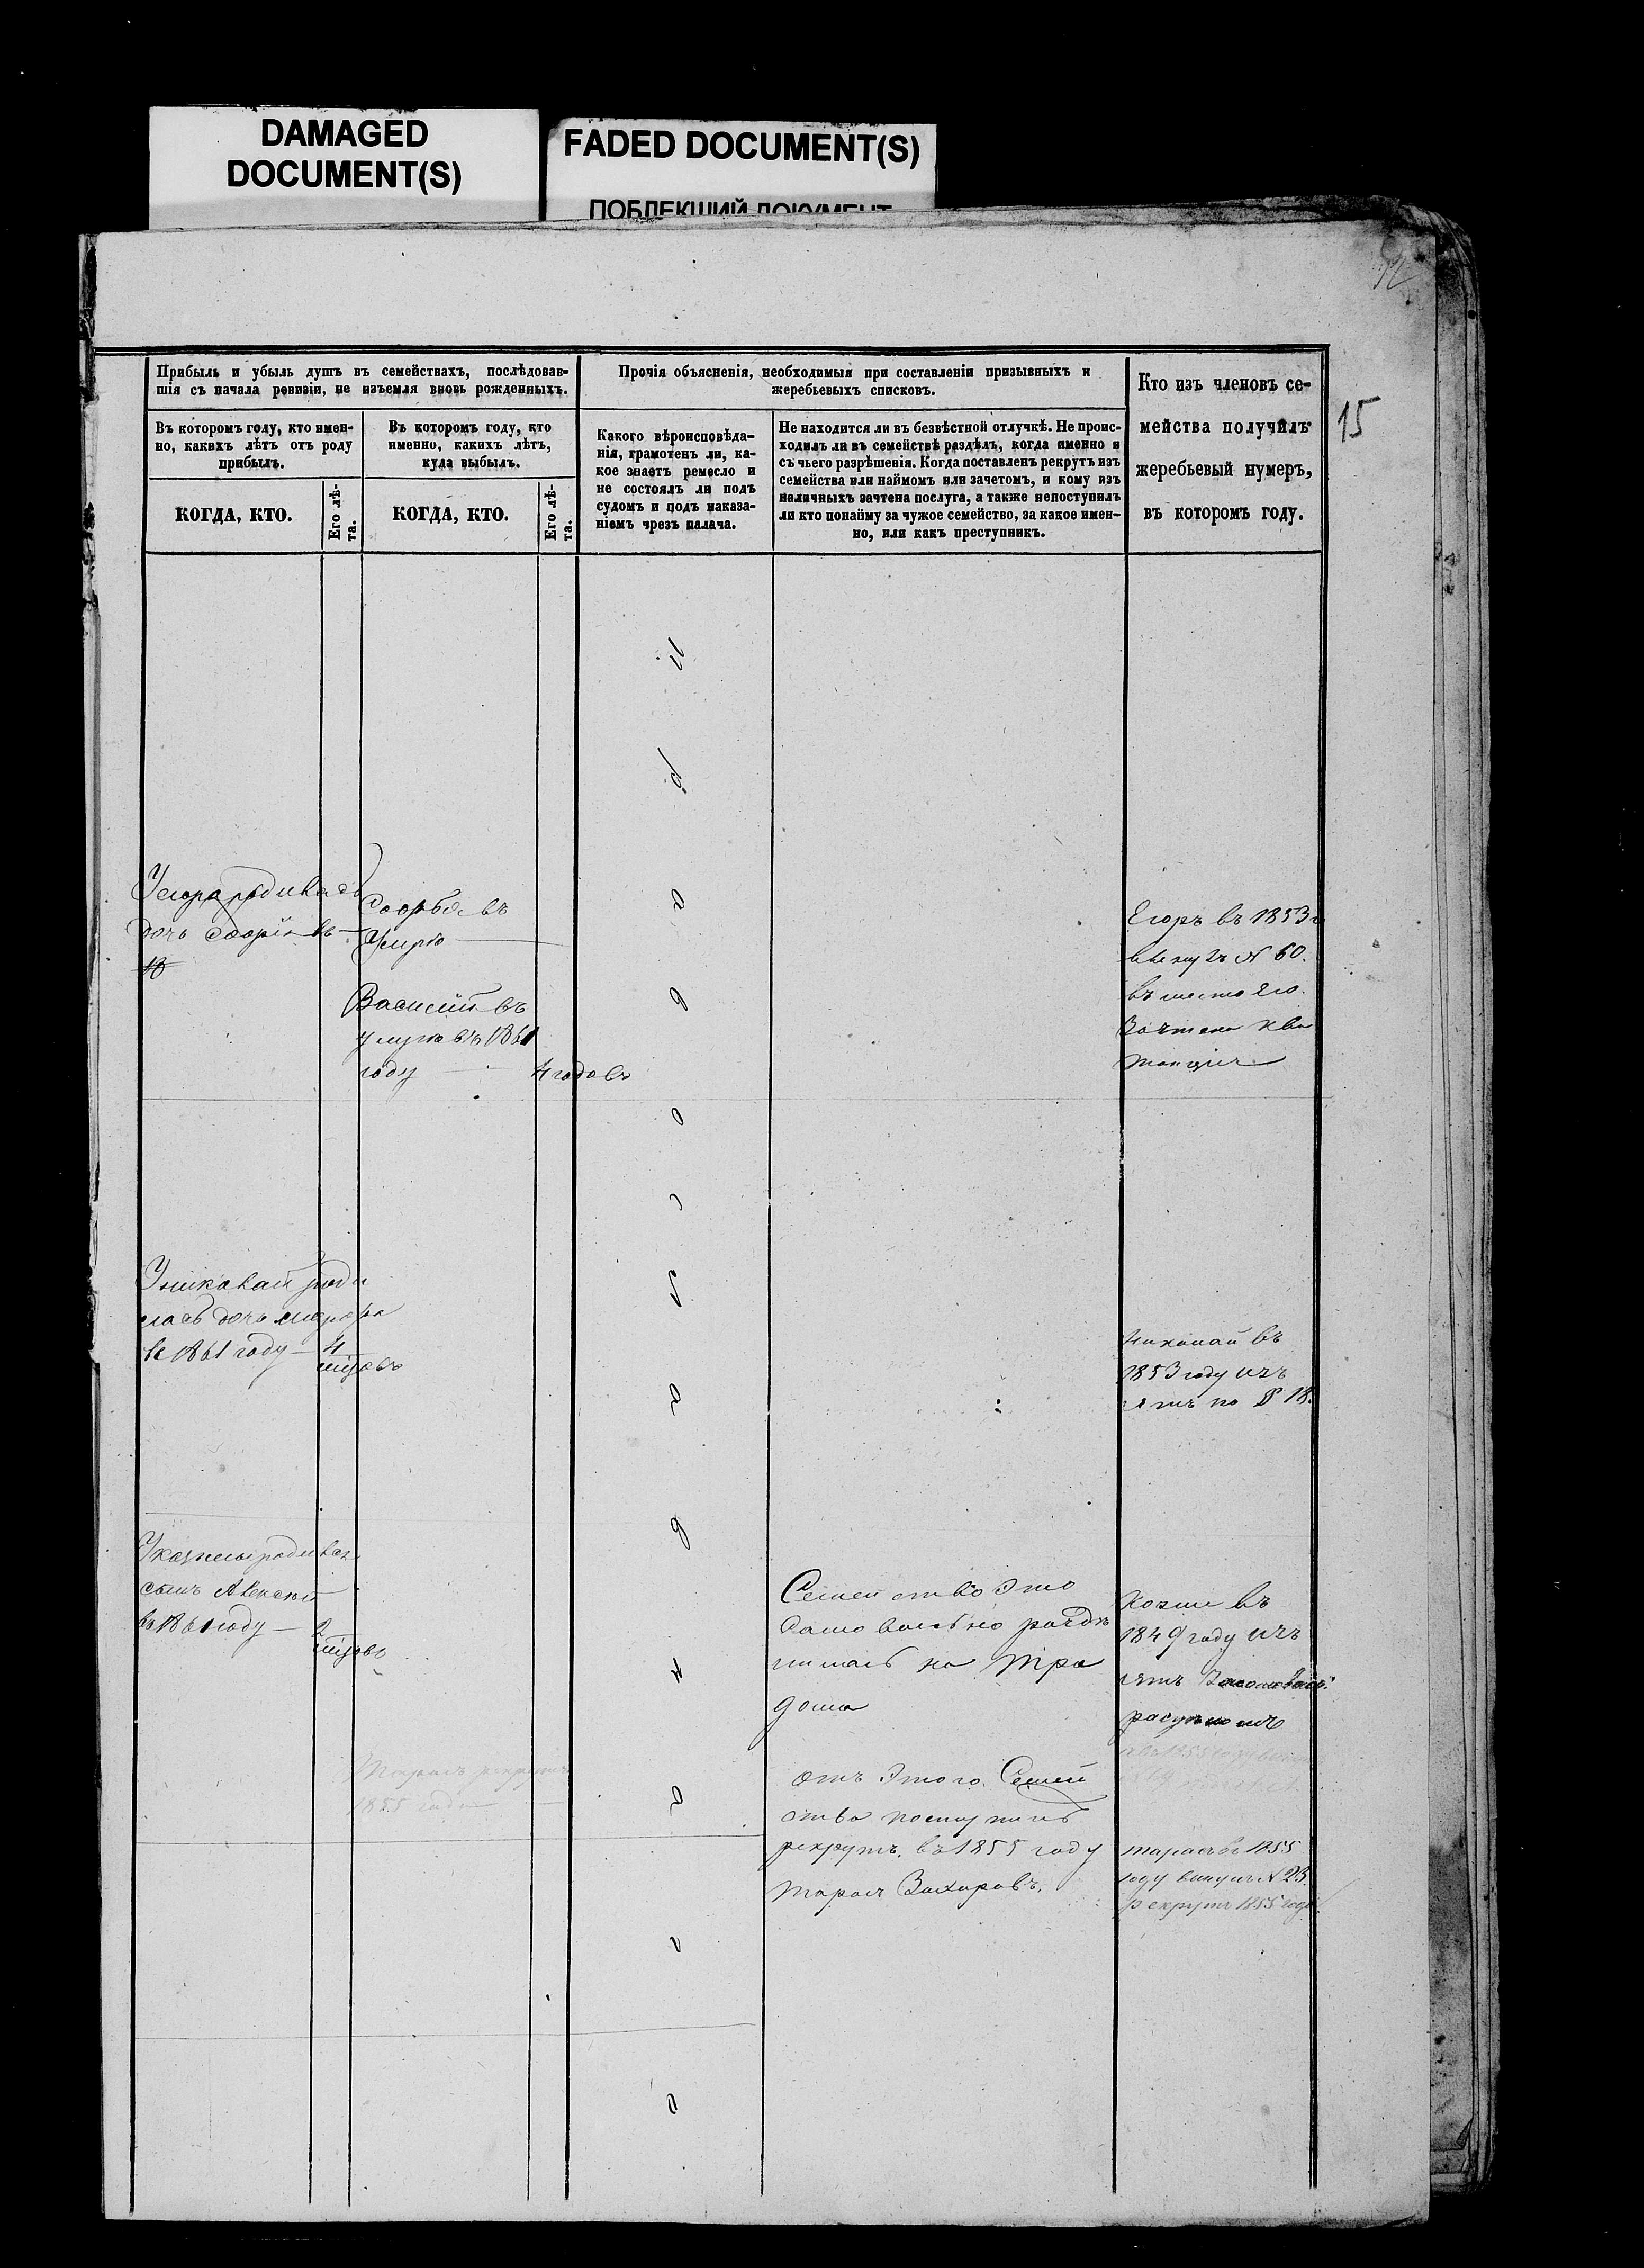 DAMAGED
DOCUMENT(S)
FADED DOCUMENT(S)
ПОБЛЕКШИЙ ДОКУМЕНТ
15
Прибыль и убыль душъ въ семействахъ, послѣдовав-
шія съ начала ревизіи, не изъемля вновь рожденныхъ.
Въ которомъ году, кто имен-
но, какихъ лѣтъ отъ роду
прибылъ.
КОГДА, КТО.
Его лѣ-
та.
Въ которомъ году, кто
именно, какихъ лѣтъ,
куда выбылъ.
КОГДА, КТО.
Его лѣ-
та.
Прочія объясненія, необходимыя при составленіи призывныхъ и
жеребьевыхъ списковъ.
Какого вѣроисповѣда-
нія, грамотенъ ли, ка-
кое знаетъ ремесло и
не состоялъ ли подъ
судомъ и подъ наказа-
ніемъ чрезъ палача.
Не находится ли въ безвѣстной отлучкѣ. Не проис-
ходилъ ли въ семействѣ раздѣлъ, когда именно и
съ чьего разрѣшенія. Когда поставленъ рекрутъ изъ
семейства или наймомъ или зачетомъ, и кому изъ
наличныхъ зачтена послуга, а также непоступилъ
ли кто понайму за чужое семейство, за какое имен-
но, или какъ преступникъ.
Кто изъ членовъ се-
мейства получилъ
жеребьевый нумеръ,
въ которомъ году.
П
р
а
в
о
с
л
а
в
н
а
г
о
дочь
Василій въ
въ 1861
году
4 годовъ
Егоръ въ 1853 г
вынулъ N 60.
въ место его
Зачтена ква
танция
роди
лась дочь
в 1861 году — 4
Николай въ
1853 году изъ
ятъ по § 18.
сынъ Алексей
въ 1861 году — 2
Семей ство это
Само вольно разде
лилась на три
дома
отъ этого Семей
ства поступилъ
рекрутъ въ 1855 году
Тарасъ Захаровъ.
Козма въ
1849 году изъ
ятъ
Тарасъ рекрутъ
1855 года
тарасъ в 1855
году вынулъ N 23.
рекрутъ 1855 года